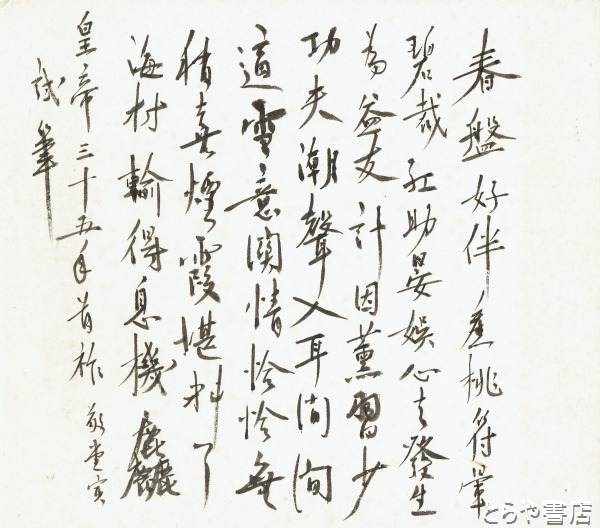 春盤好伴舊桃符筆
碧裁紅助晏娯心去發生
為益友計因薰習少
功夫潮聲入耳間間
適雪意関情恰恰無
猶喜煙霞堪料了
海村輸得息機麤
皇帝三十五年首祚
試筆
とらや書店